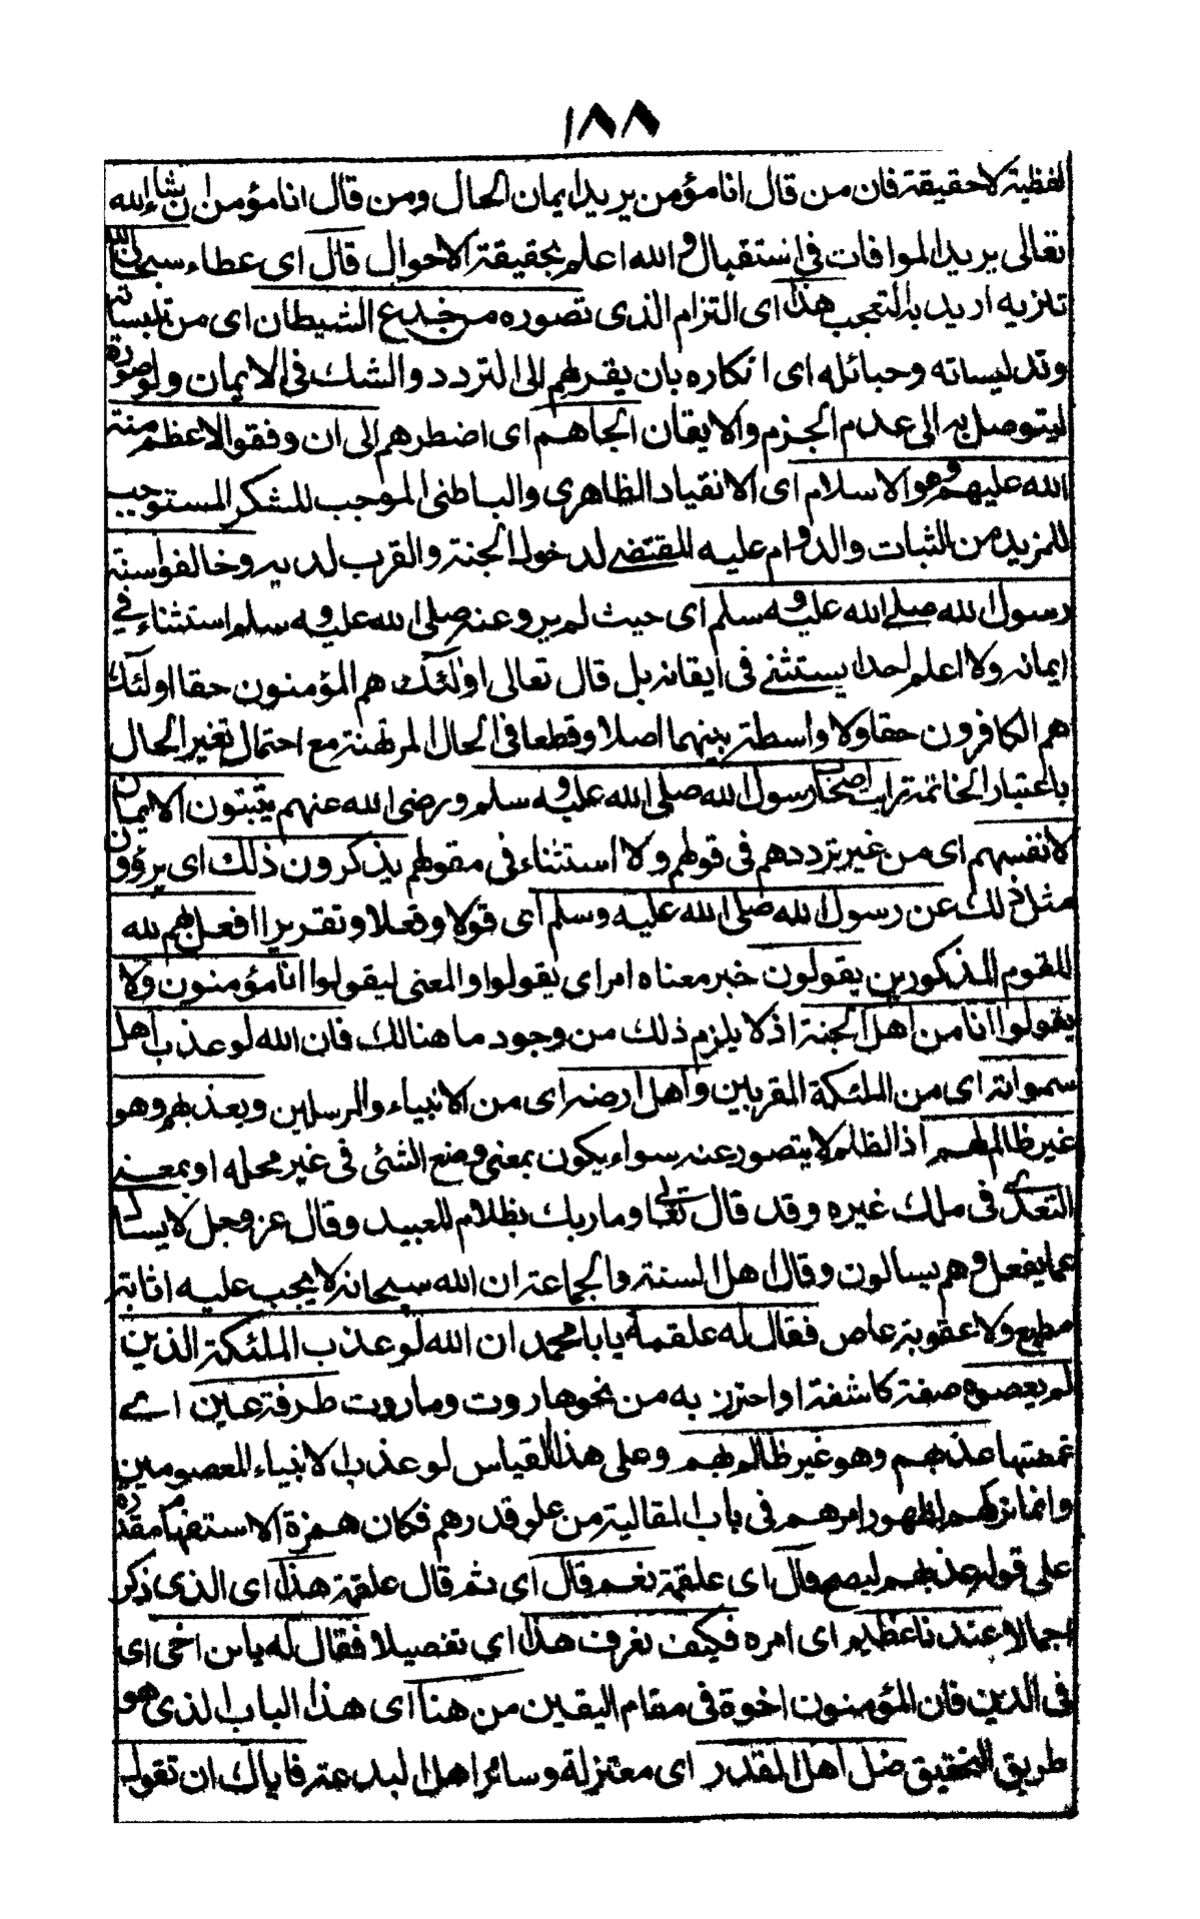 ١٨٨
لفظية لا حقيقة فان من قال انا مؤمن يريد ايمان الحال ومن قال انا مؤمن ان شاء الله
تعالى يريد الموافات في استقبال والله اعلم بحقيقة الاحوال قال اى عطاء سبحان الله
تنزيه اريد به التعجب هذا اى التزام الذى تصوره من خدع الشيطان اى من تلبساته
وتدليساته وحبائله اى انكاره بان يقربهم الى التردد والشك فى الايمان ولو صورة
ليتوصل به الى عدم الجزم والايقان الجاهم اى اضطرهم الى ان وفقوا لاعظم منته
الله عليهم وهو الاسلام اى الانقياد الظاهرى والباطنى الموجب للشكر المستوجب
للمزيد من الثبات والدوام عليه المقتضى لدخول الجنة والقرب لديه وخالفوا سنة
رسول الله صلى الله عليه وسلم اى حيث لم يرو عنه صلى الله عليه وسلم استثناء في
ايمانه ولا اعلم احدا يستثنى فى ايقانه بل قال تعالى اولئك هم المؤمنون حقا اولئك
هم الكافرون حقا ولا واسطة بينهما اصلا وقطعا فى الحال المرتهنة مع احتمال تغير الحال
باعتبار الخاتمة رايت اصحاب رسول الله صلى الله عليه وسلم ورضى الله عنهم يثبتون الايمان
لانفسهم اى من غير ترددهم فى قولهم ولا استثناء فى مقولهم يذكرون ذلك اى يروون
مثل ذلك عن رسول الله صلى الله عليه وسلم اى قولا وفعلا وتقريرا افعل بهم لله
للقوم المذكورين يقولون خبر معناه امر اى يقولوا والمعنى ليقولوا انا مؤمنون ولا
يقولوا انا من اهل الجنة اذ لا يلزم ذلك من وجود ما هنالك فان الله لو عذب اهل
سمواته اى من الملئكة المقربين واهل ارضه اى من الانبياء والمرسلين ويعذبهم وهو
غير ظالم لهم اذ الظلم لا يتصور عنه سواء يكون بمعنى وضع الشئى فى غير محله او بمعنى
التعدى فى ملك غيره وقد قال تعالى وما ربك بظلام للعبيد وقال عز وجل لا يسال
عما يفعل وهم يسالون وقال اهل السنة والجماعة ان الله سبحانه لا يجب عليه اثابة
مطيع ولا عقوبة عاص فقال له علقمة يا با محمد ان الله لو عذب الملئكة الذين
لم يعصوه صفة كاشفة او احترز به من نحو هاروت وماروت طرفة عين اى
غمضتها عذبهم وهو غير ظالم لهم وعلى هذا القياس لو عذب الانبياء المعصومين
وانما تركهم لظهور امرهم فى باب المقالية من علو قدرهم فكان همزة الاستفهام مقدرة
على قوله عذبهم ليصح قال اى علقمة نعم قال اى ثم قال علقمة هذا اى الذى ذكر
اجمالا عندنا عظيم اى امره فكيف نعرف هذا اى تفصيلا فقال له يا بن اخى اى
فى الدين فان المؤمنون اخوة فى مقام اليقين من هنا اى هذا الباب الذى هو
طريق التحقيق ضل اهل القدر اى معتزلة وسائر اهل البدعة فاياك ان تقول